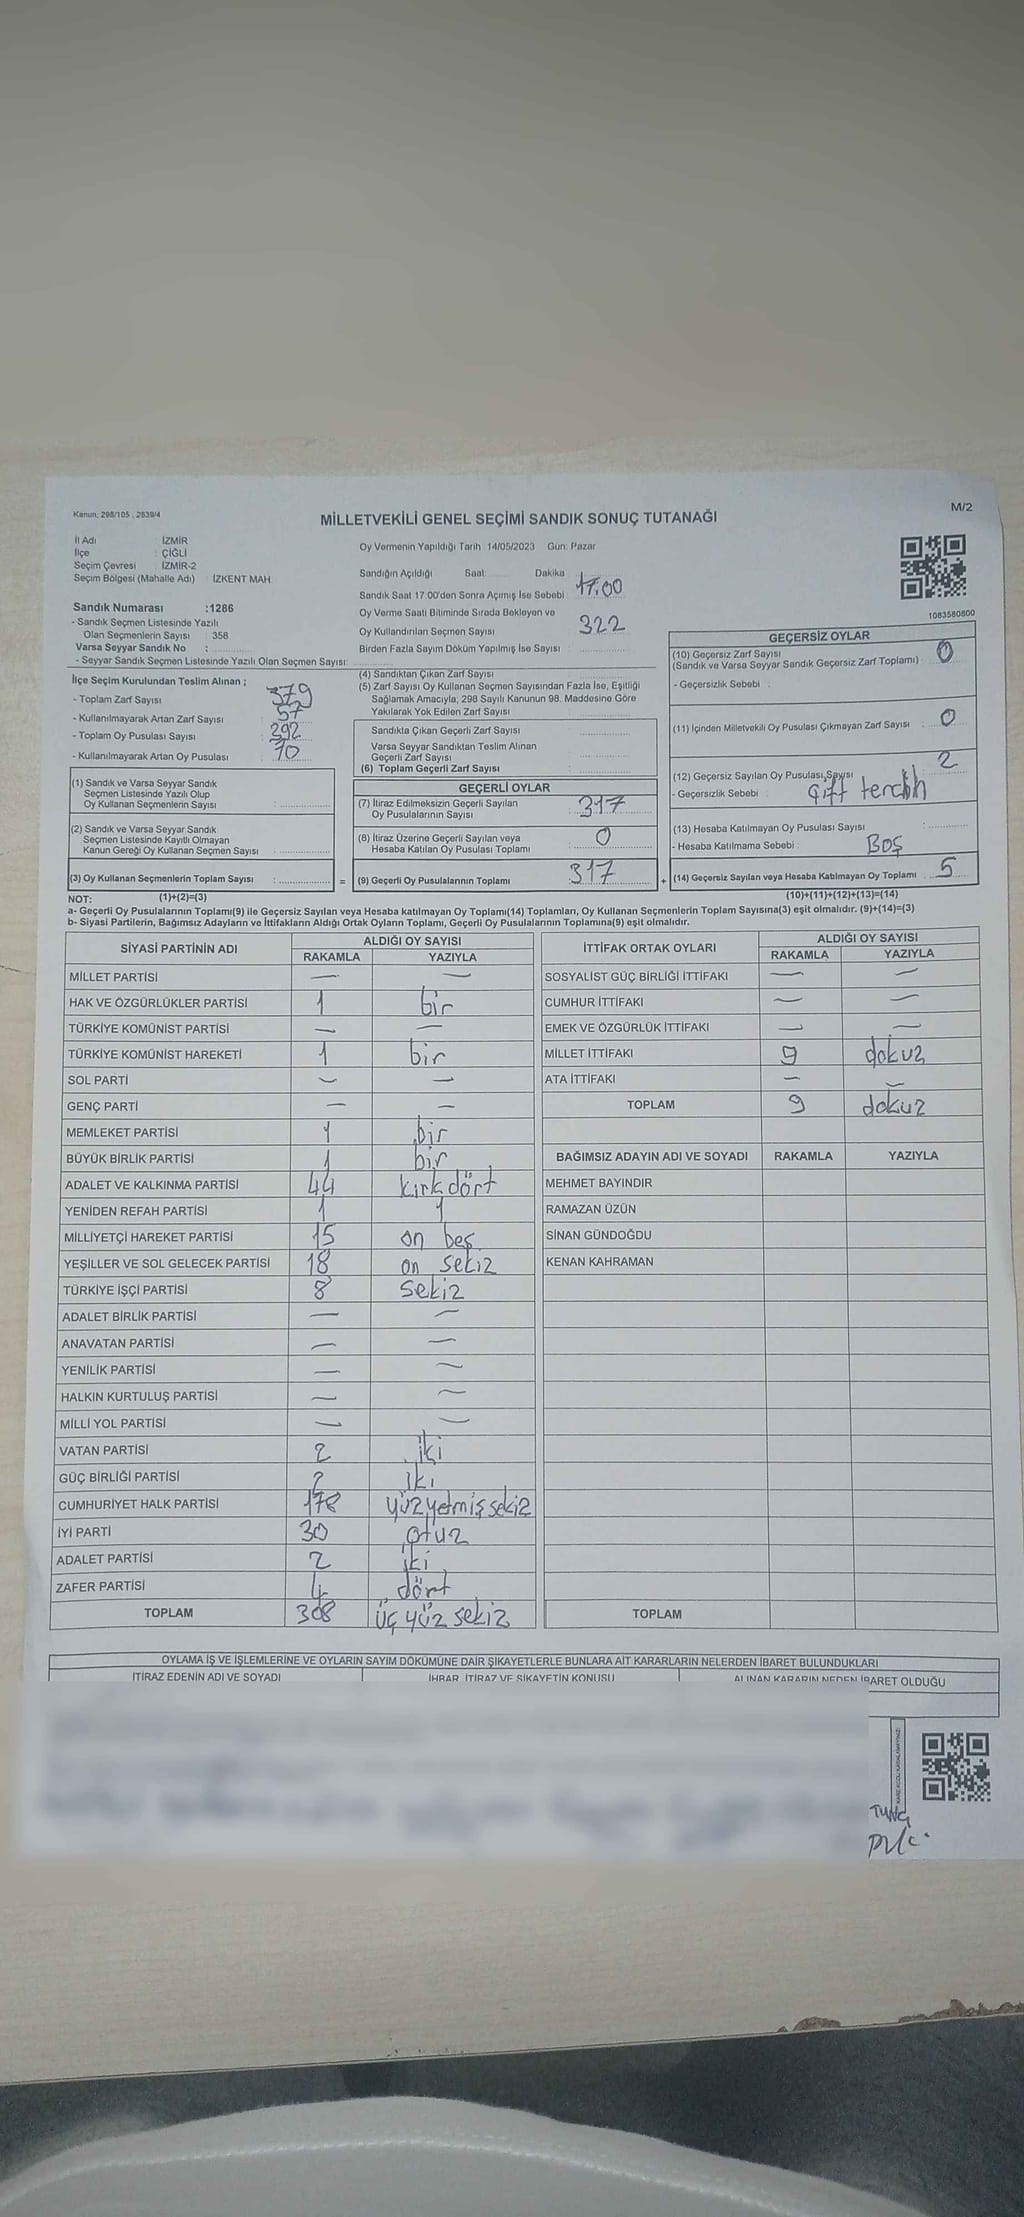 Kanun; 298/105 , 2839/4
MİLLETVEKİLİ GENEL SEÇİMİ SANDIK SONUÇ TUTANAĞI
M/2
İl Adı : İZMİR
İlçe : ÇİĞLİ
Seçim Çevresi : İZMİR-2
Seçim Bölgesi (Mahalle Adı) : İZKENT MAH.
Sandık Numarası :1286
- Sandık Seçmen Listesinde Yazılı
Olan Seçmenlerin Sayısı : 358
Varsa Seyyar Sandık No :
- Seyyar Sandık Seçmen Listesinde Yazılı Olan Seçmen Sayısı:
Oy Vermenin Yapıldığı Tarih 14/05/2023 Gün: Pazar
Sandığın Açıldığı Saat: Dakika
Sandık Saat 17.00'den Sonra Açımış İse Sebebi 17.00
Oy Verme Saati Bitiminde Sırada Bekleyen ve
Oy Kullandırılan Seçmen Sayısı 322
Birden Fazla Sayım Döküm Yapılmış İse Sayısı :
1083580800
İlçe Seçim Kurulundan Teslim Alınan ;
- Toplam Zarf Sayısı 379
- Kullanılmayarak Artan Zarf Sayısı : 57
- Toplam Oy Pusulası Sayısı : 392
- Kullanılmayarak Artan Oy Pusulası : 70
(1) Sandık ve Varsa Seyyar Sandık
Seçmen Listesinde Yazılı Olup
Oy Kullanan Seçmenlerin Sayısı :
(2) Sandık ve Varsa Seyyar Sandık
Seçmen Listesinde Kayıtlı Olmayan
Kanun Gereği Oy Kullanan Seçmen Sayısı :
(3) Oy Kullanan Seçmenlerin Toplam Sayısı :
=
(4) Sandıktan Çıkan Zarf Sayısı :
(5) Zarf Sayısı Oy Kullanan Seçmen Sayısından Fazla İse, Eşitliği
Sağlamak Amacıyla; 298 Sayılı Kanunun 98. Maddesine Göre
Yakılarak Yok Edilen Zarf Sayısı :
Sandıkta Çıkan Geçerli Zarf Sayısı :
Varsa Seyyar Sandıktan Teslim Alınan
Geçerli Zarf Sayısı :
(6) Toplam Geçerli Zarf Sayısı :
GEÇERLİ OYLAR
(7) İtiraz Edilmeksizin Geçerli Sayılan
Oy Pusulalarının Sayısı : 317
(8) İtiraz Üzerine Geçerli Sayılan veya
Hesaba Katılan Oy Pusulası Toplamı : 0
(9) Geçerli Oy Pusulalarının Toplamı : 317
+
GEÇERSİZ OYLAR
(10) Geçersiz Zarf Sayısı
(Sandık ve Varsa Seyyar Sandık Geçersiz Zarf Toplamı) : 0
- Geçersizlik Sebebi :
(11) İçinden Milletvekili Oy Pusulası Çıkmayan Zarf Sayısı : 0
(12) Geçersiz Sayılan Oy Pusulası Sayısı 2
- Geçersizlik Sebebi : Çift tercih
(13) Hesaba Katılmayan Oy Pusulası Sayısı :
- Hesaba Katılmama Sebebi : BOŞ
(14) Geçersiz Sayılan veya Hesaba Katılmayan Oy Toplamı : 5
NOT: (1)+(2)=(3)
(10)+(11)+(12)+(13)=(14)
a- Geçerli Oy Pusulalarının Toplamı(9) ile Geçersiz Sayılan veya Hesaba katılmayan Oy Toplamı(14) Toplamları, Oy Kullanan Seçmenlerin Toplam Sayısına(3) eşit olmalıdır. (9)+(14)=(3)
b- Siyasi Partilerin, Bağımsız Adayların ve İttifakların Aldığı Ortak Oyların Toplamı, Geçerli Oy Pusulalarının Toplamına(9) eşit olmalıdır.
SİYASİ PARTİNİN ADI ALDIĞI OY SAYISI
RAKAMLA YAZIYLA
MİLLET PARTİSİ — —
HAK VE ÖZGÜRLÜKLER PARTİSİ 1 bir
TÜRKİYE KOMÜNİST PARTİSİ — —
TÜRKİYE KOMÜNİST HAREKETİ 1 bir
SOL PARTİ — —
GENÇ PARTİ — —
MEMLEKET PARTİSİ 1 bir
BÜYÜK BİRLİK PARTİSİ 1 bir
ADALET VE KALKINMA PARTİSİ 44 kırk dört
YENİDEN REFAH PARTİSİ 1 1
MİLLİYETÇİ HAREKET PARTİSİ 15 on beş
YEŞİLLER VE SOL GELECEK PARTİSİ 18 on sekiz
TÜRKİYE İŞÇİ PARTİSİ 8 sekiz
ADALET BİRLİK PARTİSİ — —
ANAVATAN PARTİSİ — —
YENİLİK PARTİSİ — —
HALKIN KURTULUŞ PARTİSİ — —
MİLLİ YOL PARTİSİ — —
VATAN PARTİSİ 2 iki
GÜÇ BİRLİĞİ PARTİSİ 2 iki
CUMHURİYET HALK PARTİSİ 178 yüz yetmiş sekiz
İYİ PARTİ 30 otuz
ADALET PARTİSİ 2 iki
ZAFER PARTİSİ 4 dört
TOPLAM 308 üç yüz sekiz
İTTİFAK ORTAK OYLARI ALDIĞI OY SAYISI
RAKAMLA YAZIYLA
SOSYALİST GÜÇ BİRLİĞİ İTTİFAKI — —
CUMHUR İTTİFAKI — —
EMEK VE ÖZGÜRLÜK İTTİFAKI — —
MİLLET İTTİFAKI 9 dokuz
ATA İTTİFAKI — —
TOPLAM 9 dokuz
BAĞIMSIZ ADAYIN ADI VE SOYADI RAKAMLA YAZIYLA
MEHMET BAYINDIR
RAMAZAN ÜZÜN
SİNAN GÜNDOĞDU
KENAN KAHRAMAN
TOPLAM
OYLAMA İŞ VE İŞLEMLERİNE VE OYLARIN SAYIM DÖKÜMÜNE DAİR ŞİKAYETLERLE BUNLARA AİT KARARLARIN NELERDEN İBARET BULUNDUKLARI
İTİRAZ EDENİN ADI VE SOYADI İHBAR, İTİRAZ VE ŞİKAYETİN KONUSU ALINAN KARARIN NEDEN İBARET OLDUĞU